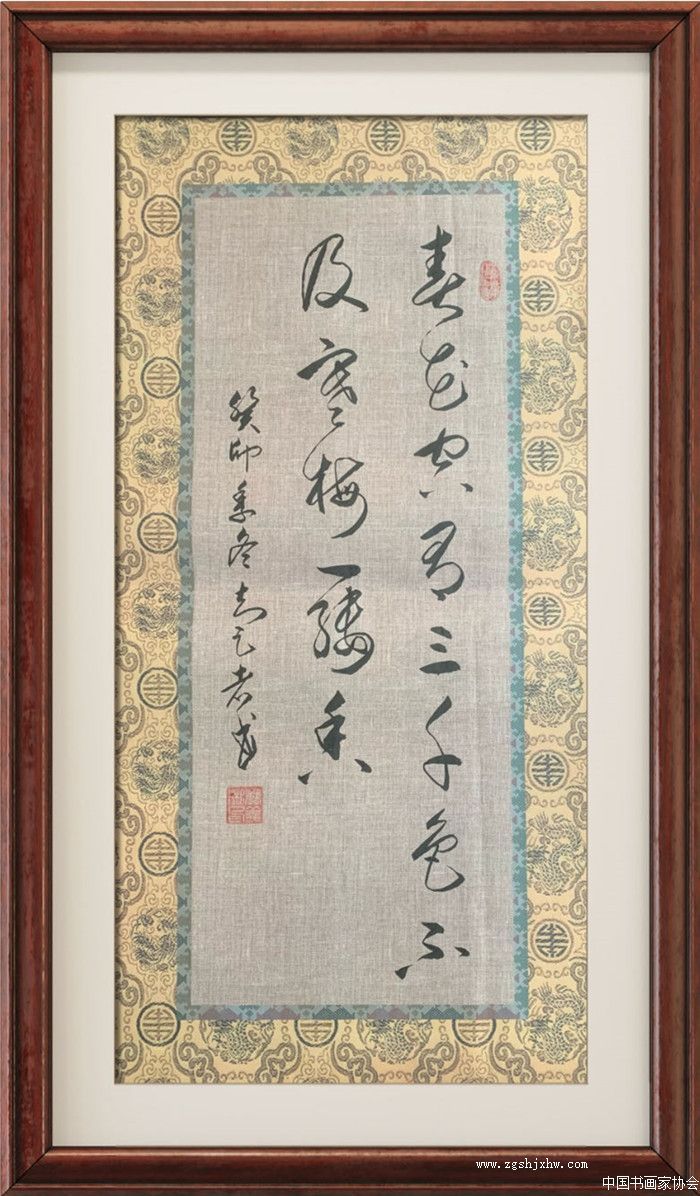 春花空有三千色不
及寒梅一缕香
癸卯季冬志元书
www.zgshjxhw.com
中国书画家协会